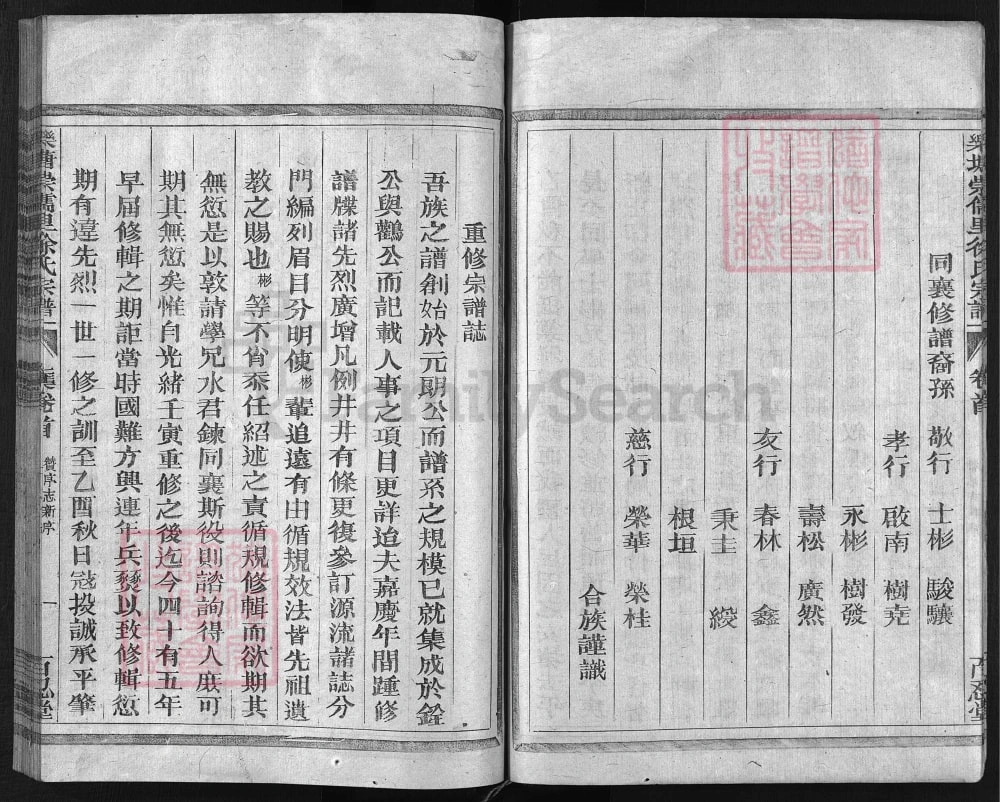 同襄修譜裔孫　敬行　士彬　駿驤
孝行　啟南　樹堯
永彬　樹發
壽松　廣然
友行　春林　鑫
秉圭　綬
根垣
慈行　榮華　榮桂
合族謹識
重修宗譜誌
吾族之譜創始於元朗公而譜系之規模已就集成於銓
公與鸛公而記載人事之項目更詳迨夫嘉慶年間踵修
譜牒諸先烈廣增凡例井井有條更復參訂源流諸誌分
門編列眉目分明使彬輩追遠有由循規效法皆先祖遺
教之賜也彬等不肖忝任紹述之責循規修輯而欲期其
無愆是以敦請學兄水君鍊同襄斯役則諮詢得人庶可
期其無愆矣惟自光緒壬寅重修之後迄今四十有五年
早屆修輯之期詎當時國難方興連年兵燹以致修輯愆
期有違先烈一世一修之訓至乙酉秋日寇投誠承平肇
崇儒里徐氏宗譜
卷首
贊序志新序
一
FamilySearch